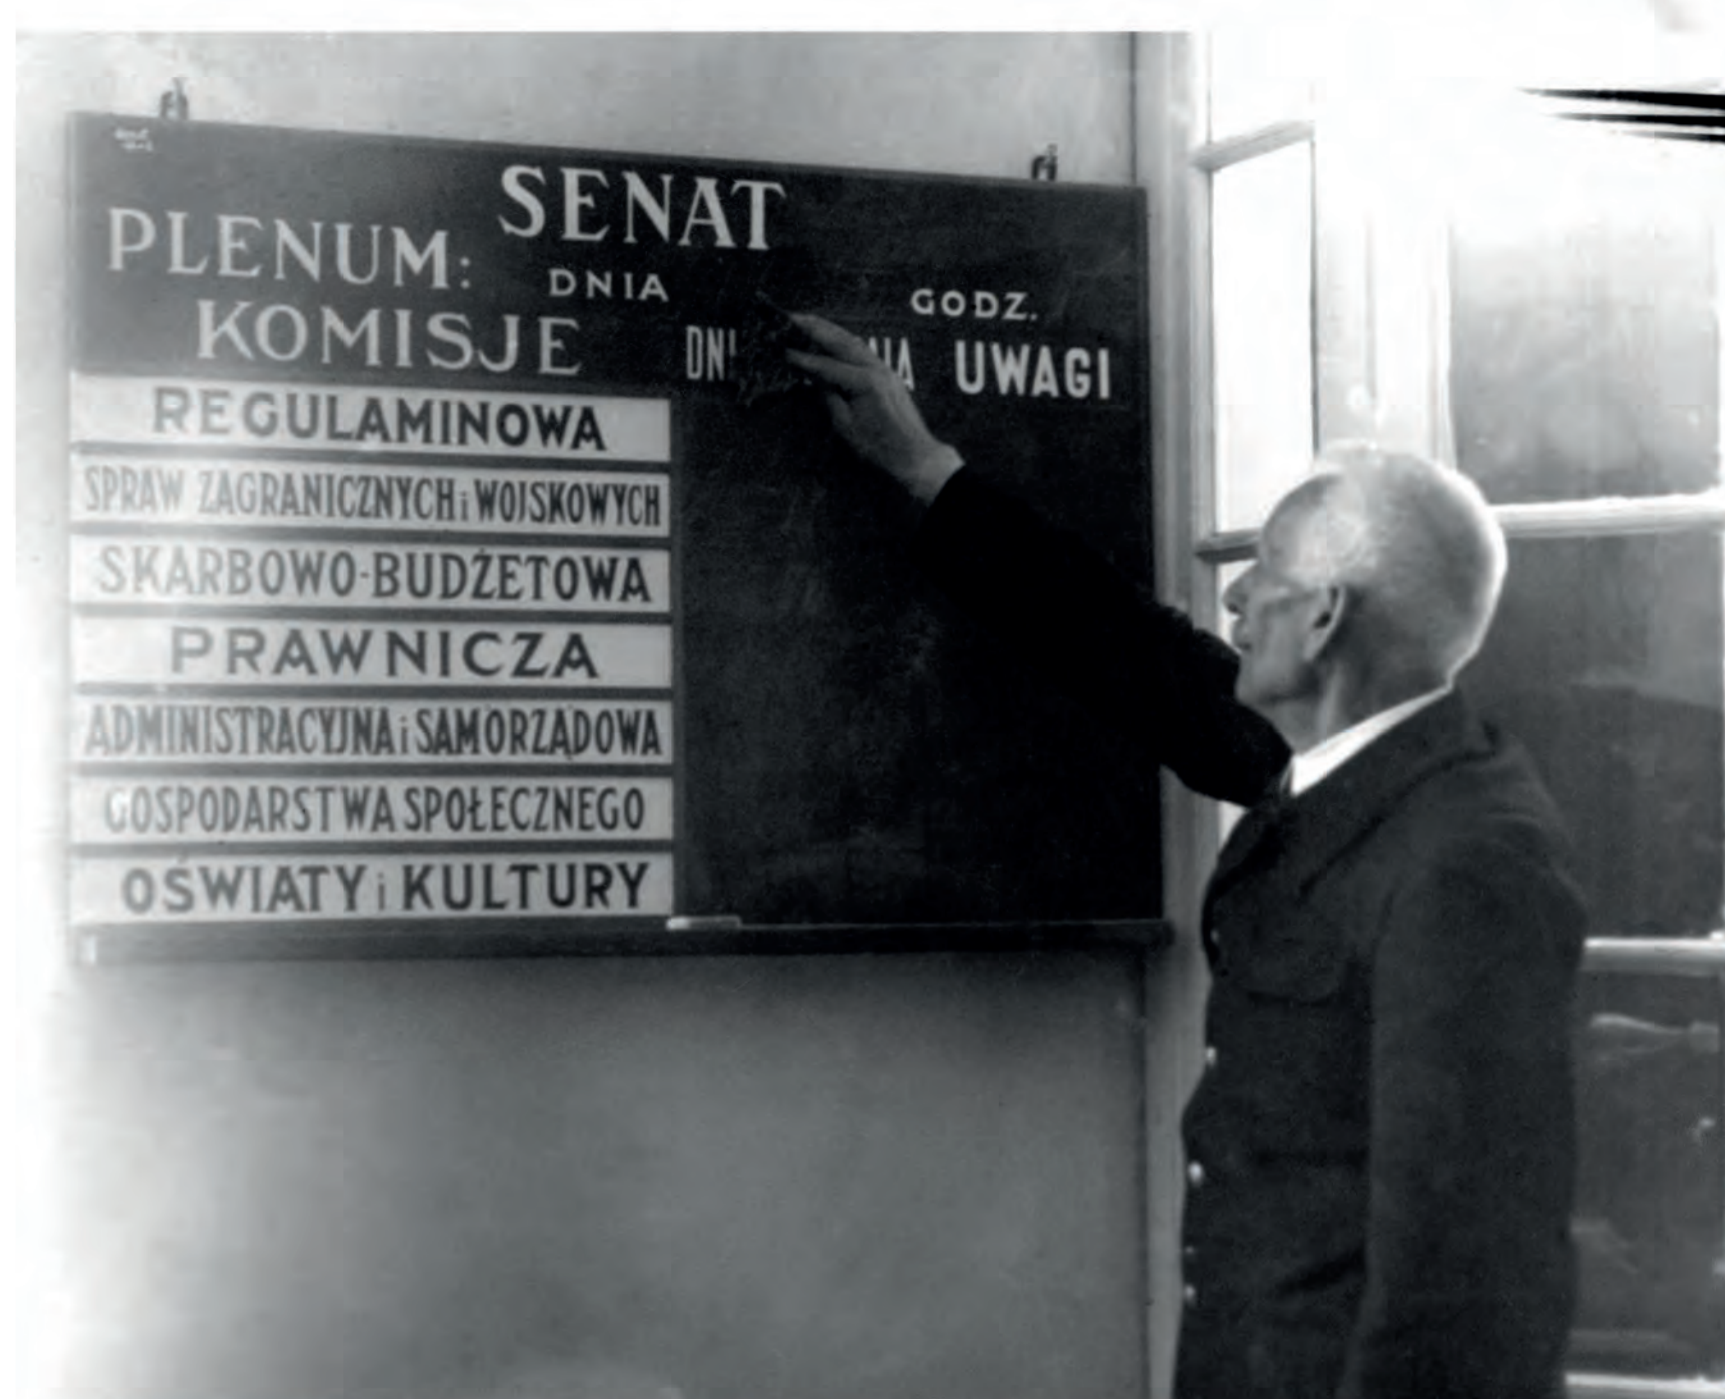 SENAT
PLENUM: DNIA GODZ.
KOMISJE UWAGI
REGULAMINOWA
SPRAW ZAGRANICZNYCH i WOJSKOWYCH
SKARBOWO-BUDŻETOWA
PRAWNICZA
ADMINISTRACYJNA i SAMORZĄDOWA
GOSPODARSTWA SPOŁECZNEGO
OŚWIATY i KULTURY